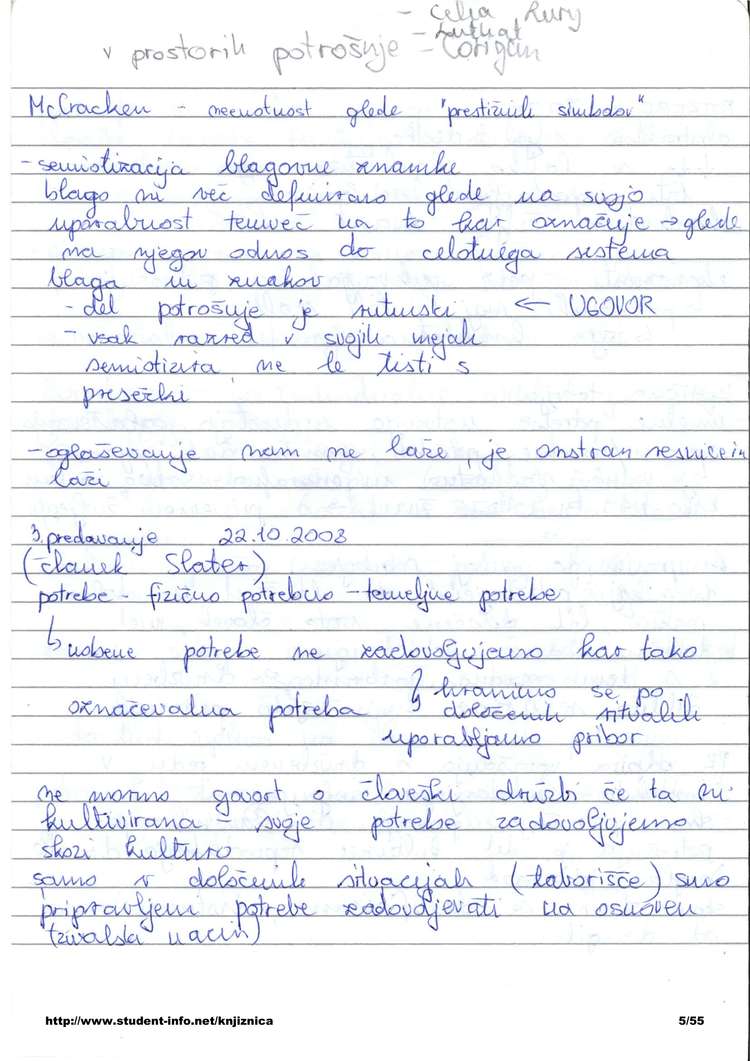 - Celia Lury
v prostorih potrošnje - Corigan
McCracken - neenotnost glede "prestižnih simbolov"
- semiotizacija blagovne znamke
blago ni več definirano glede na svojo
uporabnost temveč na to kar označuje → glede
na njegov odnos do celotnega sistema
blaga in znakov
- del potrošnje je rutinski ← UGOVOR
- vsak razred v svojih mejah
semiotizira ne le tisti s
presežki
- oglaševanje nam ne laže, je onstran resnice in
laži
3. predavanje 22.10.2008
(članek Slater)
potrebe - fizično potrebno - temeljne potrebe
↳ nobene potrebe ne zadovoljujemo kar tako
hranimo se po
označevalna potreba določenih ritualih
uporabljamo pribor
ne mormo govort o človeški družbi če ta ni
kultivirana - svoje potrebe zadovoljujemo
skozi kulturo
samo v določenih situacijah (taborišče) smo
pripravljeni potrebe zadovoljevati na osnoven
(živalski način)
http://www.student-info.net/knjiznica
5/55